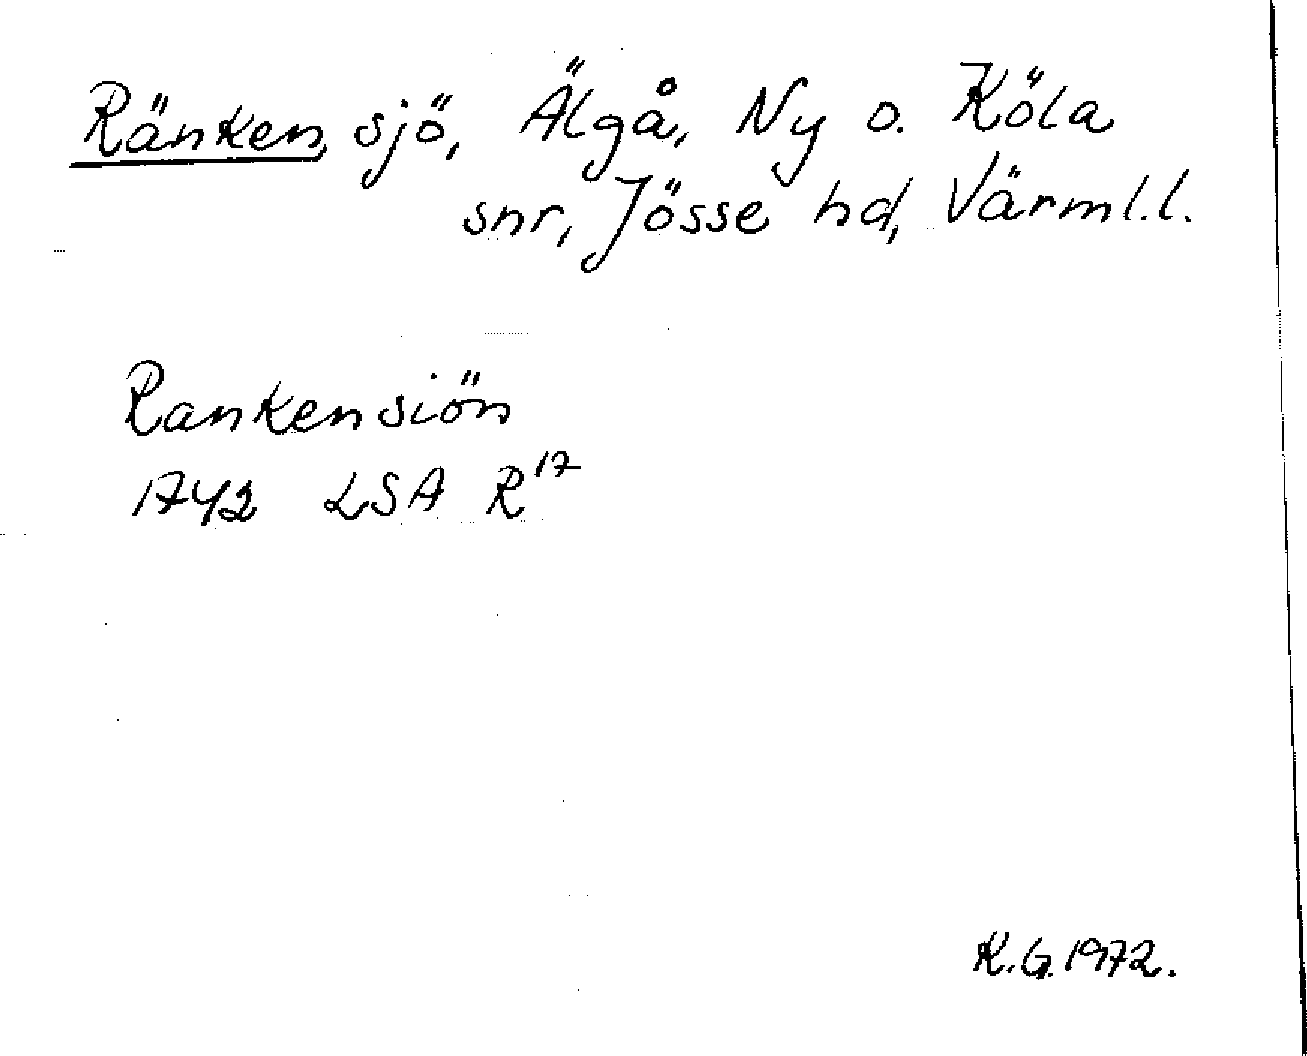 Ränken, sjö, Älgå, Ny o. Köla
snr, Jösse hd, Värml.l.
Rankensiön
1742 LSA R¹⁷
K.G. 1972.